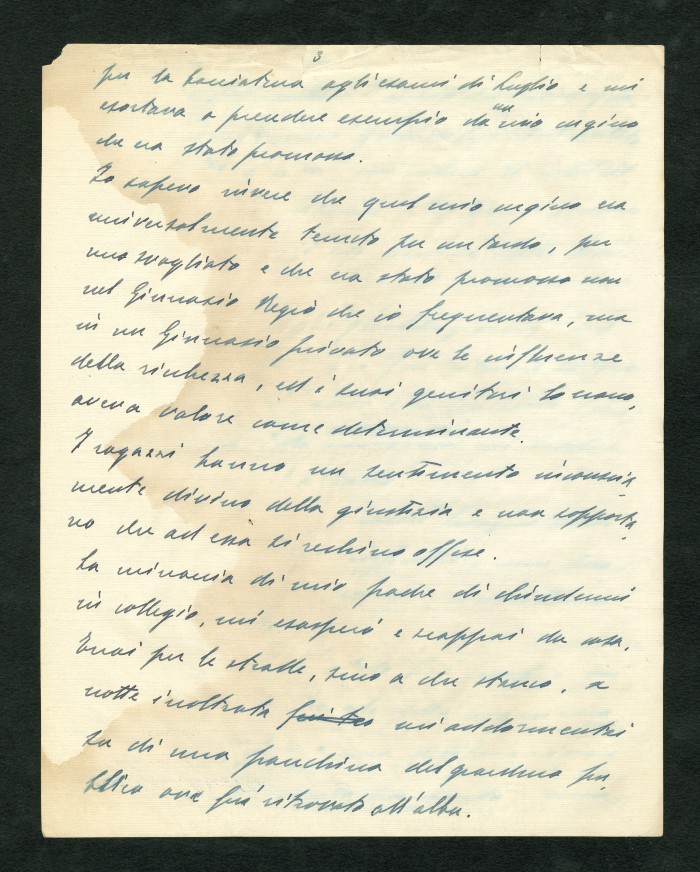 3
per la bocciatura agli esami di luglio e mi
esortava a prendere esempio da un mio cugino
che era stato promosso.
Io sapevo invece che quel mio cugino era
universalmente tenuto per un tardo, per
uno svogliato e che era stato promosso non
nel Ginnasio Regio che io frequentavo, ma
in un Ginnasio privato ove le influenze
della ricchezza, ed i suoi genitori lo erano,
aveva valore come determinante.
I ragazzi hanno un sentimento inconscia-
mente divino della giustizia e non sopporta-
no che ad essa si rechino offese.
La minaccia di mio padre di chiudermi
in collegio, mi esasperò e scappai da casa.
Errai per le strade, sino a che stanco, a
notte inoltrata mi addormentai
su di una panchina del giardino pu-
bblico ove fui ritrovato all'alba.